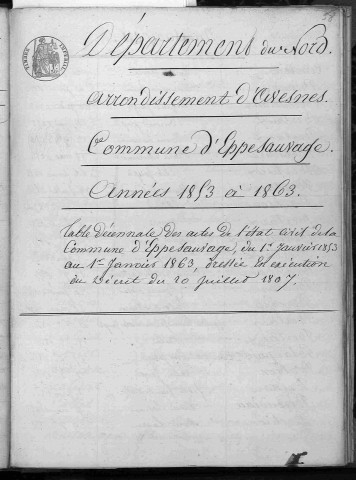 Département du Nord.
arrondissement d'Avesnes.
Commune d'Eppesauvage.
Années 1853 à 1863.
Table décennale des actes de l'état civil de la
Commune d'Eppesauvage, du 1er Janvier 1853
au 1er Janvier 1863, dressée en exécution
du Décret du 20 Juillet 1807.